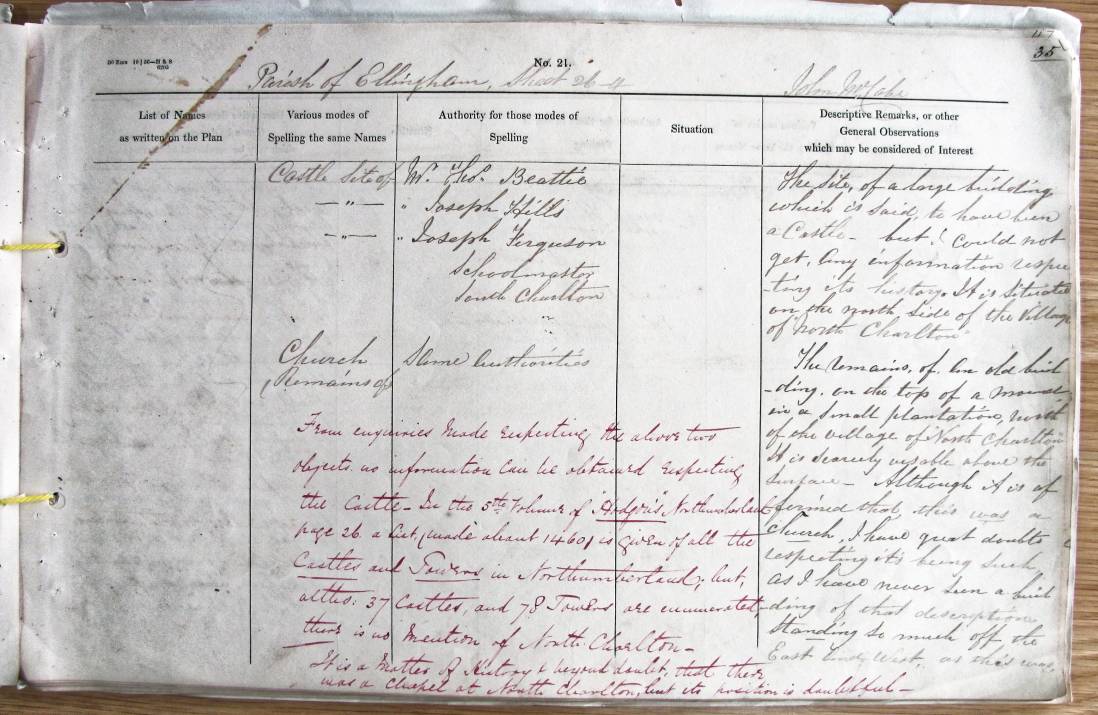 47
35
No. 21.
Parish of Ellingham, Sheet 26-4
John McCabe
List of Names
as written on the Plan
Various modes of
Spelling the same Names
Authority for those modes of
Spelling
Situation
Descriptive Remarks, or other
General Observations
which may be considered of Interest
Castle Site of
— " —
— " —
Mr. Thos. Beattie
" Joseph Hills
" Joseph Ferguson
Schoolmaster
South Charlton
"
The Site, of a large building
which is said, to have been
a Castle - but I could not
get, any information respec
-ting its history. It is Situate
on the north side of the Village
of "North Charlton"
Church
(Remains of)
Same authorities
The remains, of an old buil
-ding, on the top of a mound
in a small plantation, north
of the village of North Charlton
It is scarcely visable above the
surface - Although it is af
-firmed that, this was a
Church, I have great doubts
respecting it's being such,
as I have never seen a buil
-ding of that description
standing so much off the
East and West, as this was.
From enquiries made respecting the above two
objects no information can be obtained respecting
the Castle - In the 5th Volume of "Hodgson's" Northumberland
page 26 a list, (made about 1460) is given of all the
Castles and Towers in Northumberland; but,
altho: 37 Castles, and 78 Towers are enumerated,
there is no mention of North Charlton -
It is a matter of History & beyond doubt, that there
was a Chapel at North Charlton, but its position is doubtful -